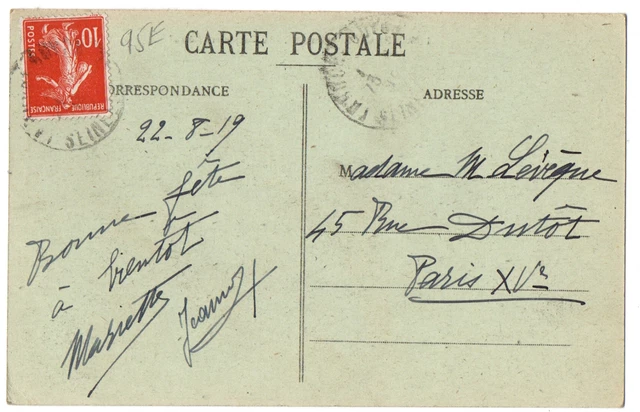 10c
POSTES
REPUBLIQUE FRANÇAISE
95E
CARTE POSTALE
CORRESPONDANCE
ADRESSE
22-8-19
Bonne fête
à bientôt
Mariette
Madame M Lévêque
45 Rue Dutôt
Paris XVe